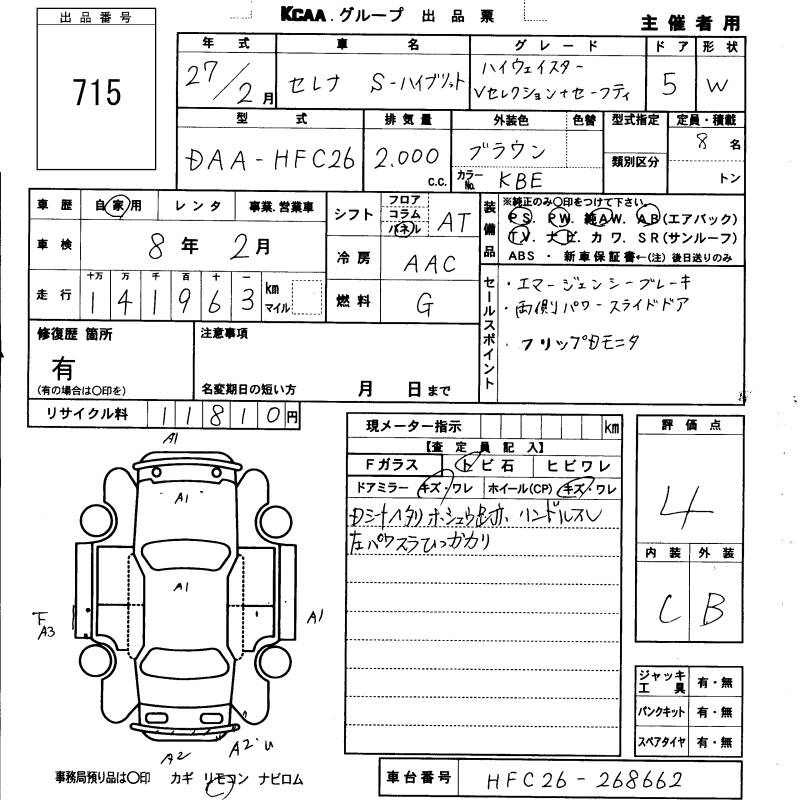 KCAA.グループ 出品票
主催者用
出品番号
715
年式 車名 グレード ドア 形状
27/2月 セレナ S-ハイブリット ハイウェイスター
Vセレクション+セーフティ 5 W
型式 排気量 外装色 色替 型式指定 定員・積載
DAA-HFC26 2.000 c.c. ブラウン 8名
カラーNo. KBE 類別区分 トン
車歴 自家用 レンタ 事業.営業車
車検 8年 2月
走行 十万 万 千 百 十 一
141963 km マイル
シフト フロア コラム パネル AT
冷房 AAC
燃料 G
装備品 ※純正のみ〇印をつけて下さい。
PS. PW. 純AW. AB(エアバック)
TV. ナビ. カワ. SR(サンルーフ)
ABS ・ 新車保証書←(注)後日送りのみ
セールスポイント
・エマージェンシーブレーキ
・両側パワースライドドア
・フリップDモニタ
修復歴 箇所
有
(有の場合は〇印を)
注意事項
名変期日の短い方 月 日まで
リサイクル料 11810円
現メーター指示 km
【査定員記入】
Fガラス トビ石 ヒビワレ
ドアミラー キズ・ワレ ホイール(CP) キズ・ワレ
左パワスラひっかかり
評価点
4
内装 外装
C B
ジャッキ工具 有・無
パンクキット 有・無
スペアタイヤ 有・無
A1
A1
A1
F
A3
A1
A2
A2・U
事務局預り品は〇印 カギ リモコン ナビロム
車台番号 HFC26-268662